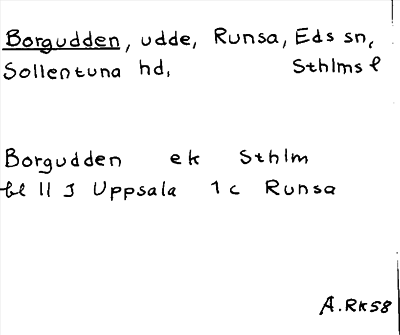 Borgudden, udde, Runsa, Eds sn,
Sollentuna hd, Sthlms l
Borgudden ek Sthlm
bl 11 J Uppsala 1 c Runsa
A. RK 58